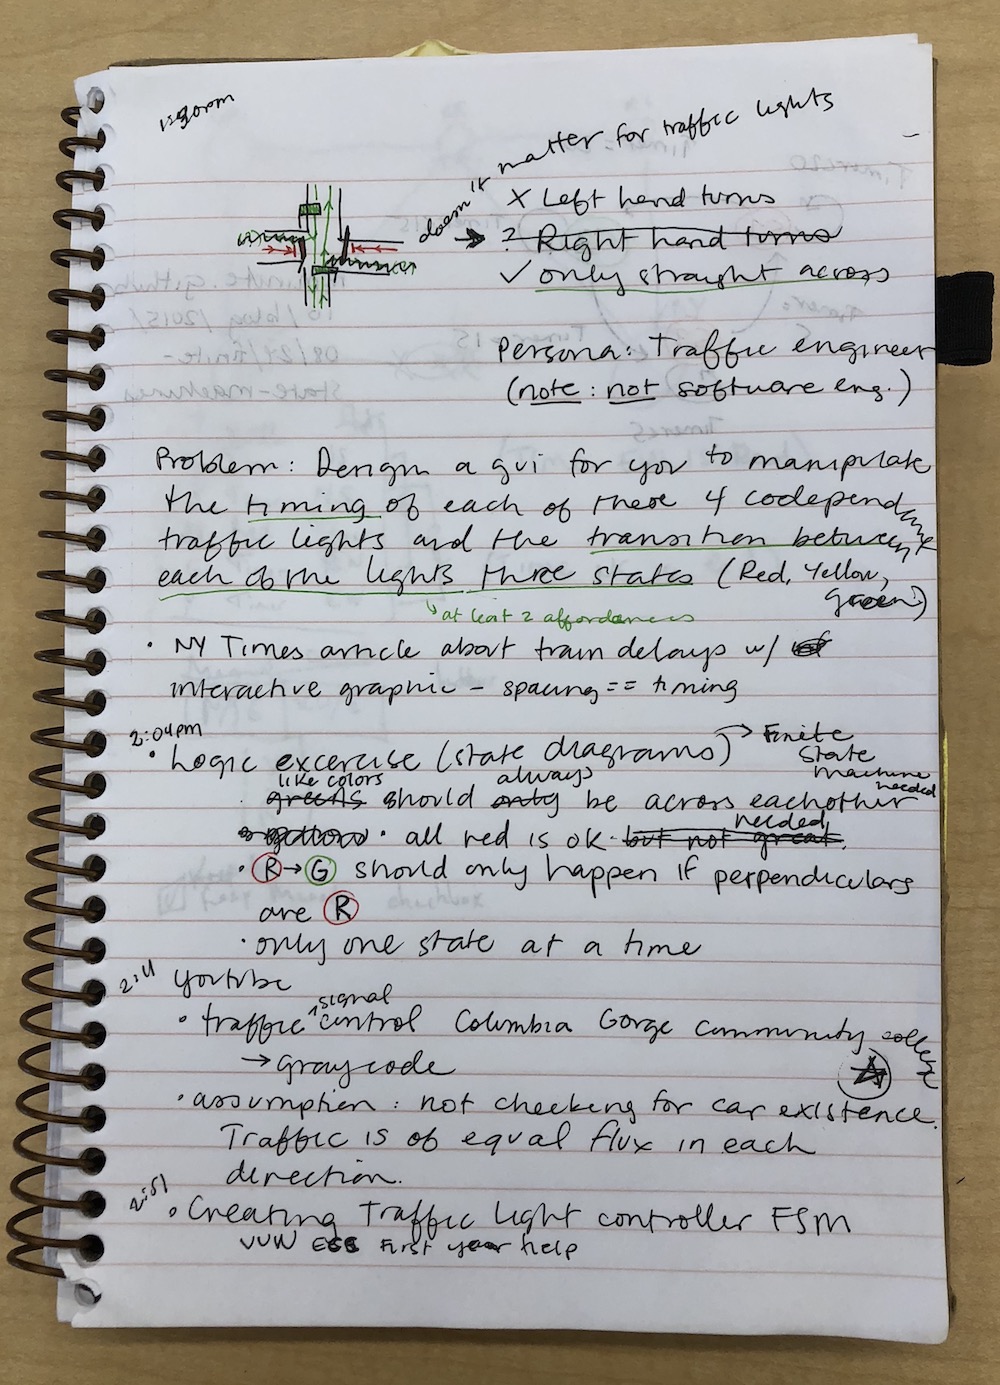 1:30pm
doesn't matter for traffic lights
X Left hand turns
→ ? Right hand turns
✓ only straight across
Persona: Traffic engineer
(note: not software eng.)
Problem: Design a gui for you to manipulate
the timing of each of these 4 codependant
traffic lights and the transition between
each of the lights three states (Red, Yellow,
Green)
↳ at least 2 affordances
• NY Times article about train delays w/
interactive graphic - spacing == timing
2:04pm
• Logic excercise (state diagrams) → Finite
State
Machine
needed
like colors always
· greens should only be across eachother
yellow · all red is ok but not great.
needed
· R → G should only happen if perpendiculars
are R
· only one state at a time
2:11 youtube
• traffic ^signal control Columbia Gorge Community college
→ graycode
• assumption: not checking for car existence.
Traffic is of equal flux in each
direction.
2:51
• Creating Traffic Light controller FSM
VUW First year help